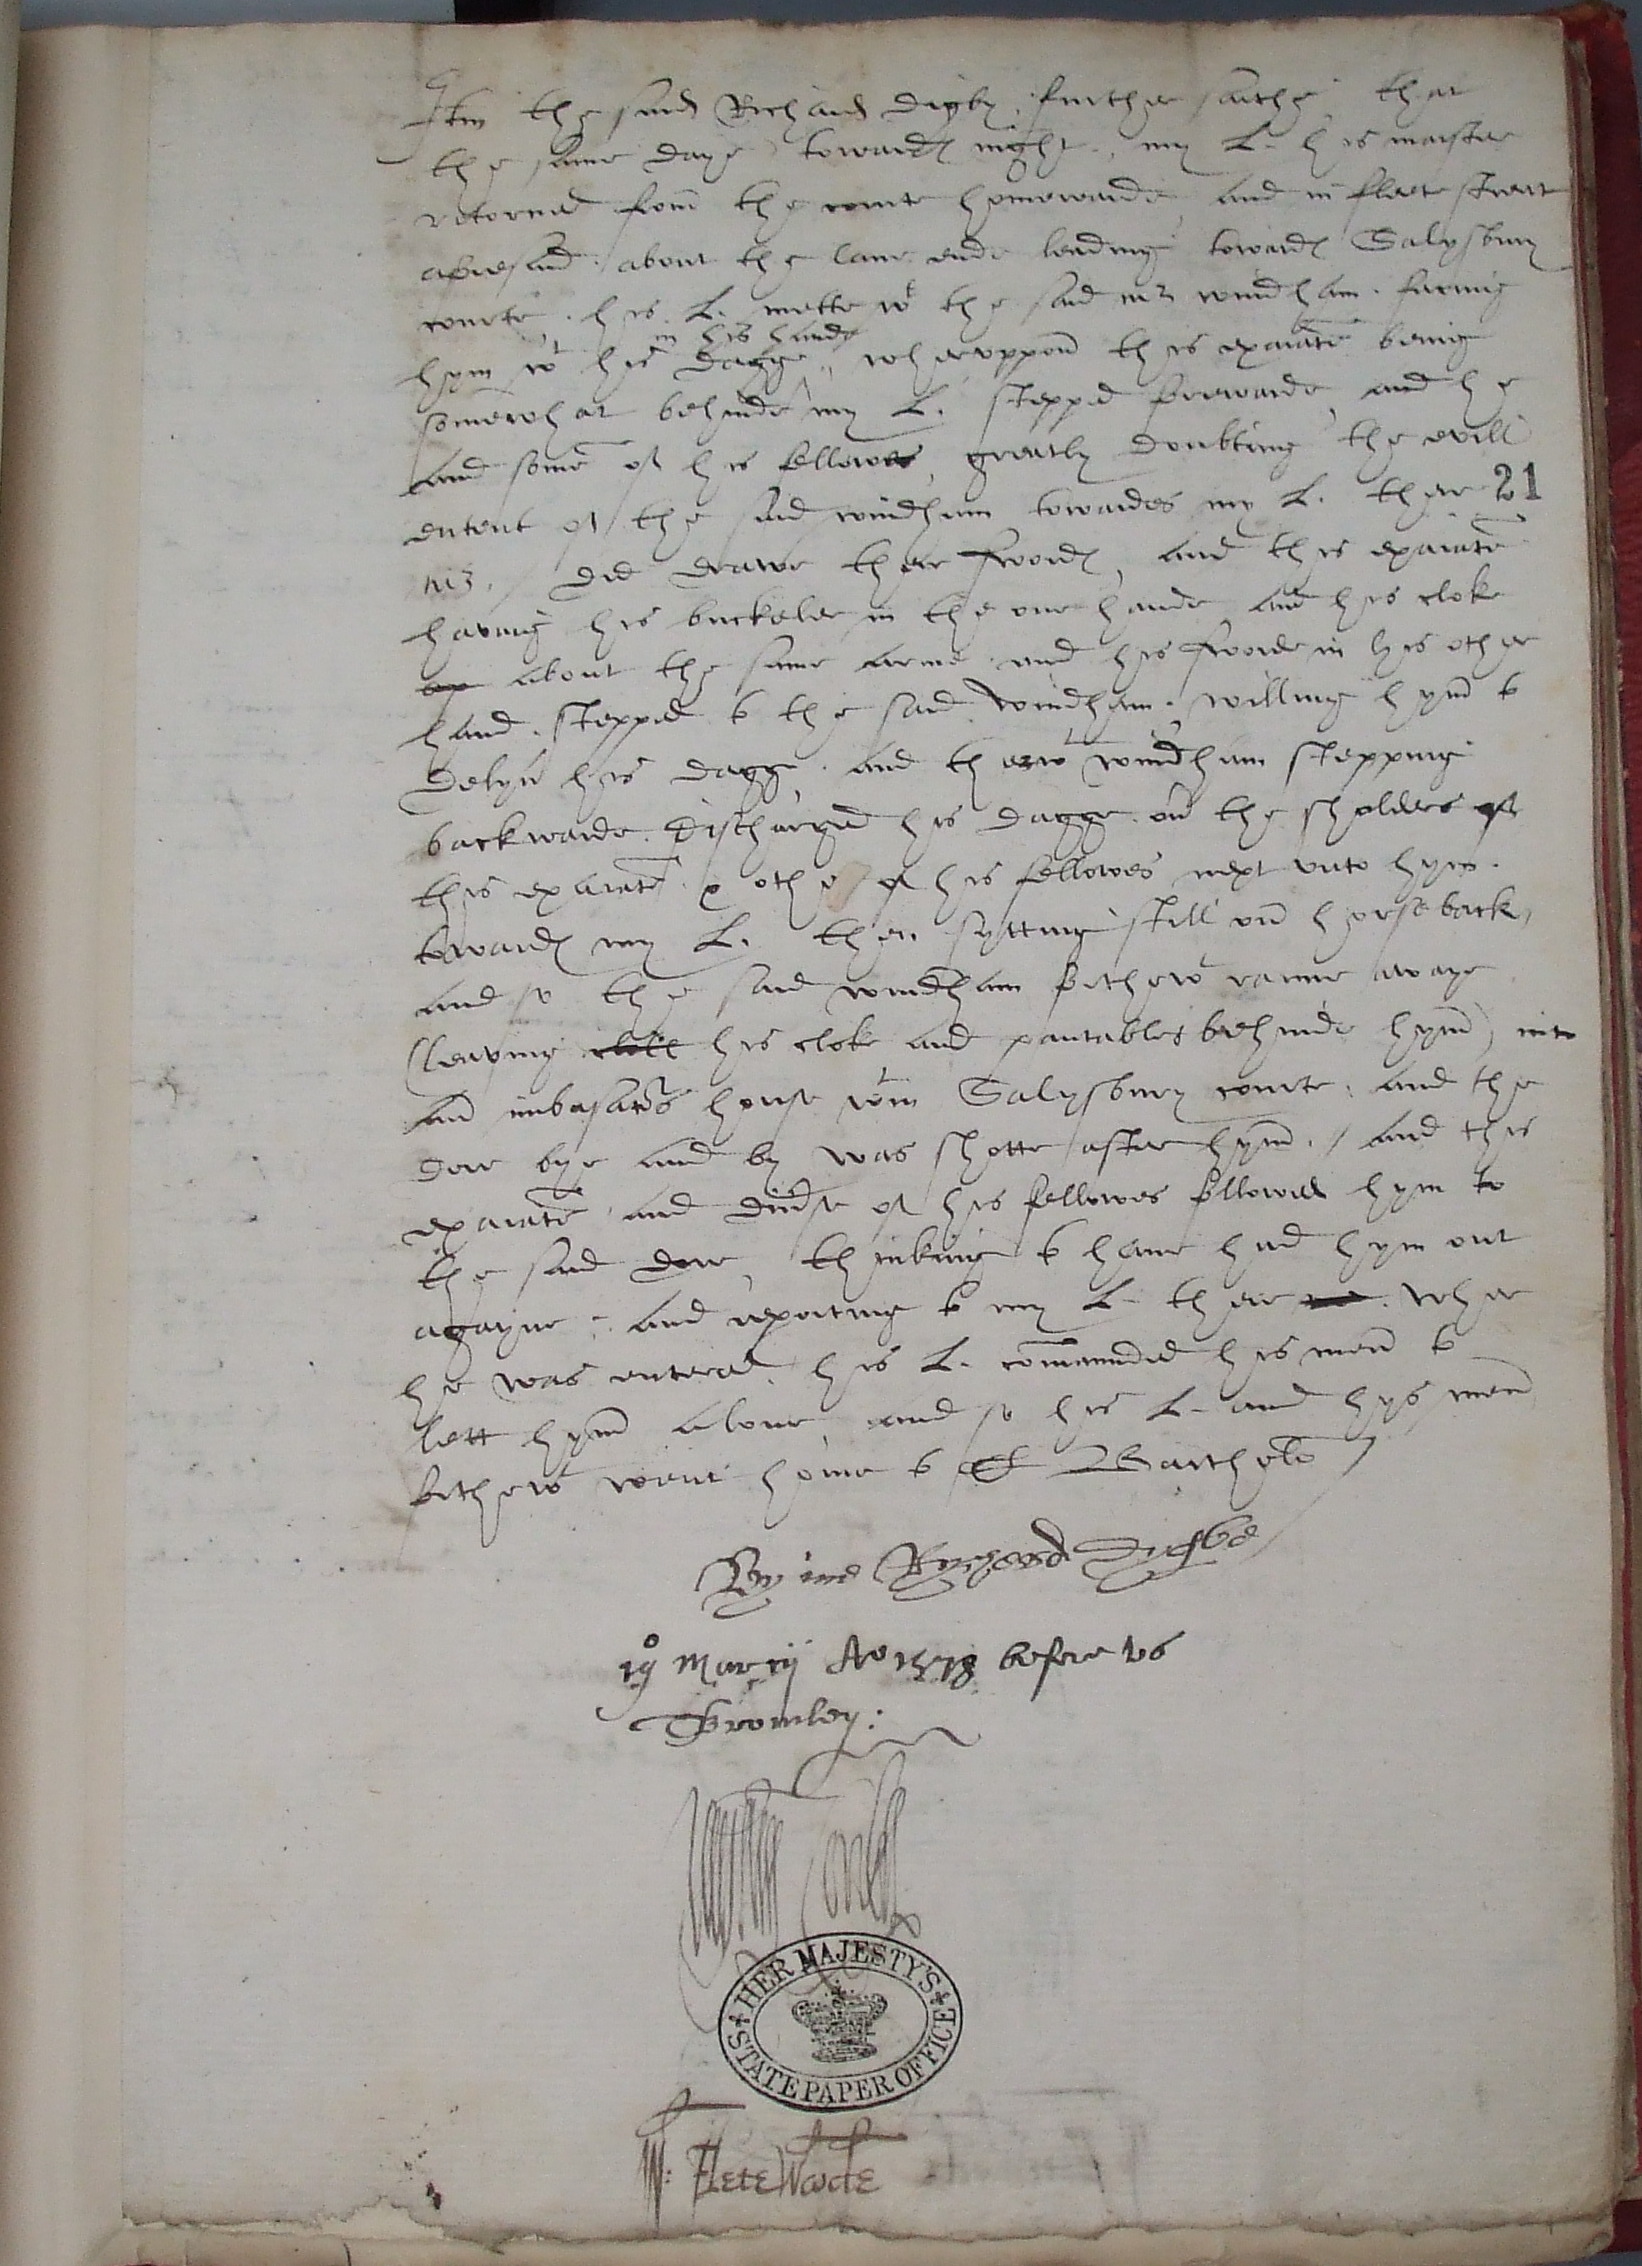 Itm the said Richard Digby further saithe that
the same daye towards night, my L. his maister
retorned from the courte homewarde, and in fleet streat
aforesaid about the lane ende leading towards Salysbury
courte. his L. mette wt the said mr windham. facing
in his hande
hym wt his dagge,, wheruppon this examate being
somewhat behinde my L. stepped forwarde, and he
and some of his fellowes, greatly doubting the evill
entent of the said windham towardes my L. there
21
mr. / did drawe their swords, and this examate
having his buckeler in the one hande and his cloke
about the same arme and his sworde in his other
hand. stepped to the said windham. willing hym to
delyu his dagge. and therwt windham stepping
backwarde. discharged his dagge. on the sholders of
this examate & other of his fellowes next unto hym.
towards my L. then sytting still on horseback,
and so the said windham forthewt ranne awaye
(leaving his cloke and pantables behinde hym) into
an imbasators house wtin Salysbury courte. and the
dore bye and by was shotte after hym. / and this
examate and diuse of his fellowes followed hym to
the said dore, thinking to haue had hym out
agayne, and reporting to my L. there wher
he was entered. his L. commanded his men to
lett hym alone, and so his L. and hys men
forthewt went home to Barthelo /
By me Rychard Dygbe
19o Marcij Ao 1578 before us
Bromley:
HER MAJESTY'S
STATE PAPER OFFICE
W: FleteWode